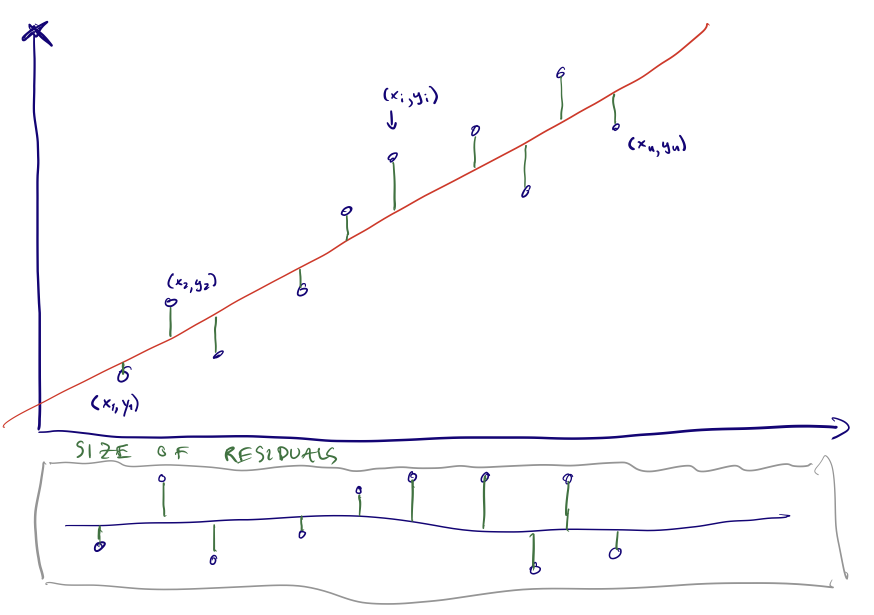 (xi,yi)
(xn,yn)
(x2,y2)
(x1,y1)
SIZE OF RESIDUALS